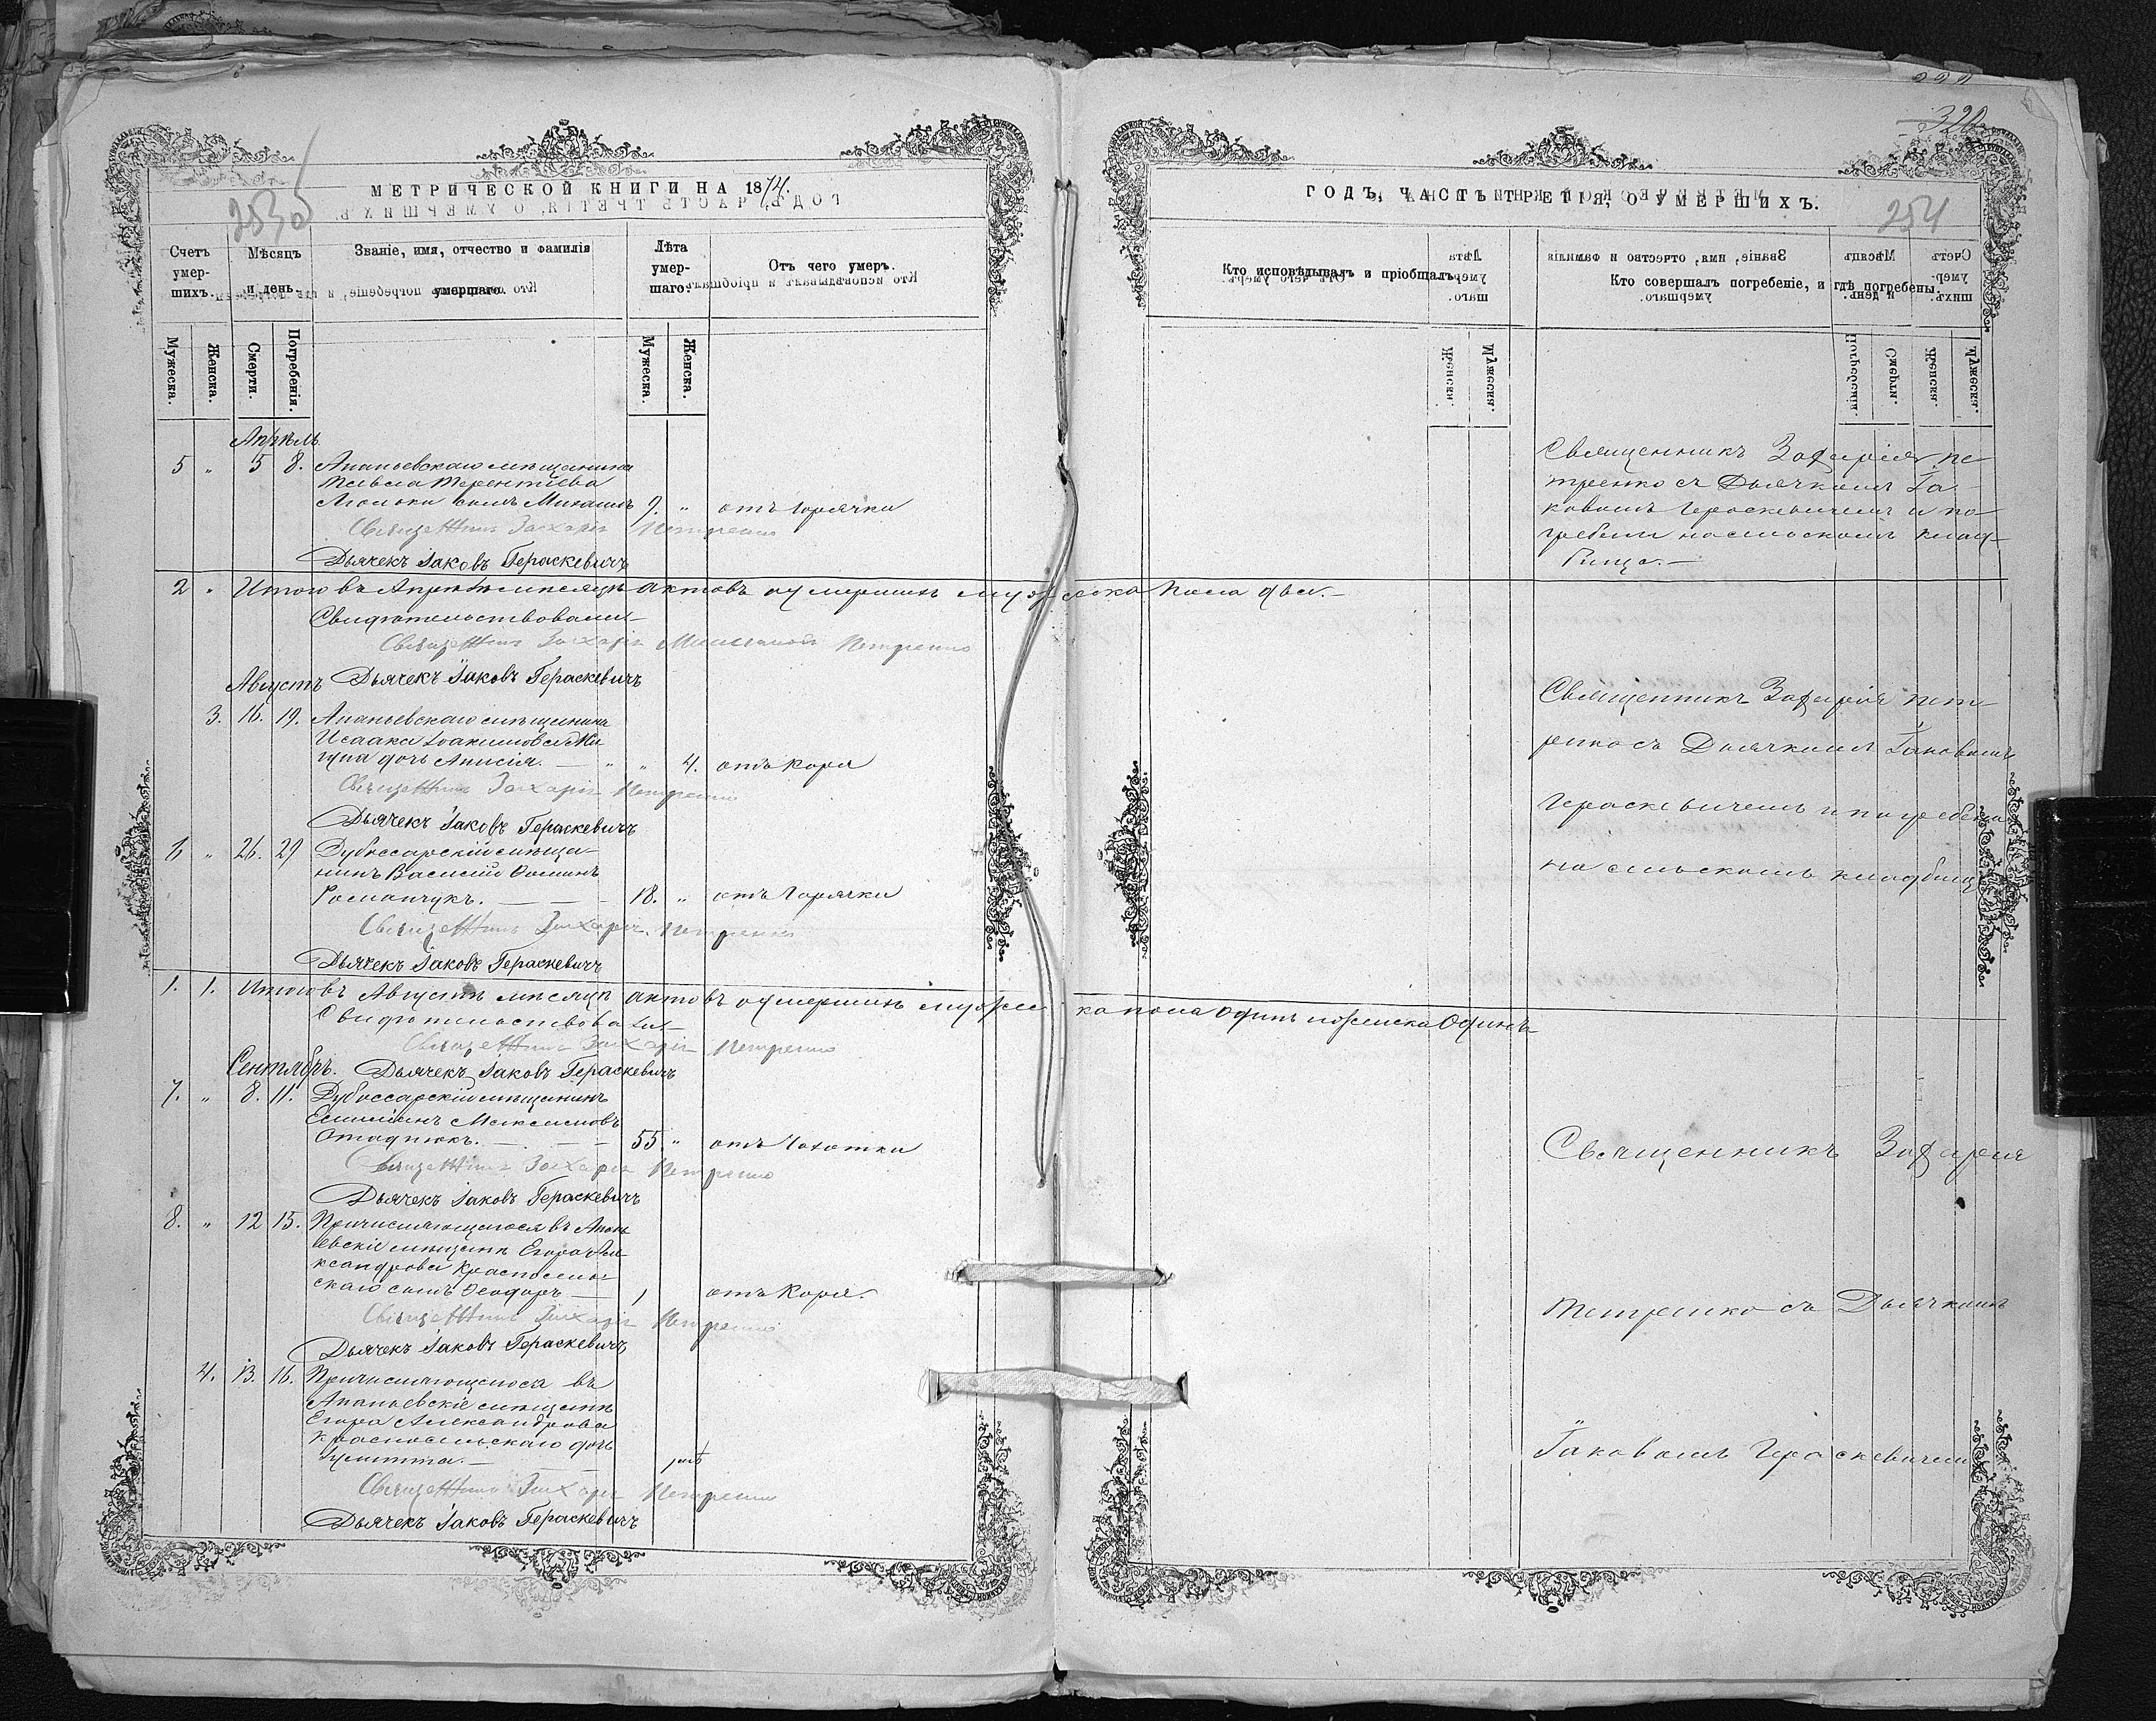 МЕТРИЧЕСКОЙ КНИГИ НА 1874.
253об
Счетъ умер-шихъ.
Мѣсяцъ и день.
Званіе, имя, отчество и фамилія умершаго.
Лѣта умер-шаго.
Отъ чего умеръ.
Мужеска. Женска. Смерти. Погребенія. Мужеска. Женска.
Апрѣль
5 „ 5 8. Ананьевскаго мѣщанина
Павла Терентіева
сынъ Михаилъ „ отъ горячки
Священникъ Захарія Петренко
Дьячекъ Іаковъ Гераскевичъ
2 „ Итого въ Апрѣлѣ мѣсяцѣ актовъ о умершихъ мужеска пола два.—
Свидѣтельствовали—
Священникъ Захарія Петренко
Дьячекъ Іаковъ Гераскевичъ
Августъ
3. 16. 19. Ананьевскаго мѣщанина
Исаака Іоакимова Ми-
дочь Анисія. — „ „ 4. отъ кори
Священникъ Захарія Петренко
Дьячекъ Іаковъ Гераскевичъ
6 „ 26. 29 Дубоссарскій мѣща-
нинъ Василій Фоминъ
Романчукъ. — — 18. „ отъ горячки
Священникъ Захарія Петренко
Дьячекъ Іаковъ Гераскевичъ
1. 1. Итого въ Августѣ мѣсяцѣ актовъ о умершихъ мужеска пола одинъ и женска одинъ
Свидѣтельствовали—
Священникъ Захарія Петренко
Сентябрь. Дьячекъ Іаковъ Гераскевичъ
7. „ 8. 11. Дубоссарскій мѣщанинъ
Емиліанъ Максимовъ
55 „ отъ чахотки
Священникъ Захарія Петренко
Дьячекъ Іаковъ Гераскевичъ
8. „ 12 15. Причисляющагося въ Анань-
евскіе мѣщане Егора Але-
ксандрова Красносель-
скаго сынъ Ѳеодоръ — 1 отъ кори.
Священникъ Захарія Петренко
Дьячекъ Іаковъ Гераскевичъ
4. 13. 16. Причисляющагося въ
Ананьевскіе мѣщане
Егора Александрова
Красносельскаго дочь
Священникъ Захарія Петренко
Дьячекъ Іаковъ Гераскевичъ
320
ГОДЪ, ЧАСТЬ ТРЕТІЯ, О УМЕРШИХЪ.
254
Кто исповѣдывалъ и пріобщалъ.
Кто совершалъ погребеніе, и гдѣ погребены.
Священникъ Захарія Пе-
тренко съ Дьячкомъ Іа-
ковомъ Гераскевичемъ и по-
гребли на сельскомъ клад-
бище.—
Священникъ Захарія Пет-
ренко съ Дьячкомъ Іаковомъ
Гераскевичемъ и погребены
на сельскомъ кладбищѣ
Священникъ Захарія
Петренко съ Дьячкомъ
Іаковомъ Гераскевичемъ